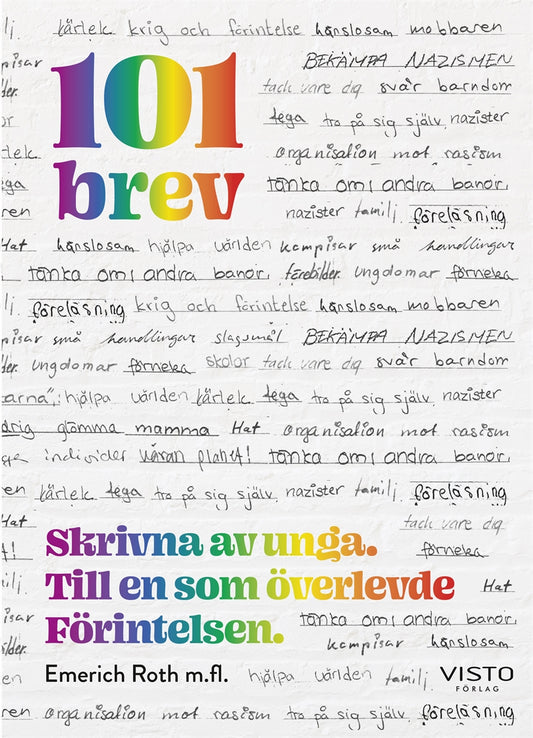 kärlek krig och förintelse hänslosam mobbaren
BEKÄMPA NAZISMEN
101
tack vare dig svår barndom
tega tro på sig själv nazister
organisation mot rasism
brev
tänka om i andra banor,
nazister familj föreläsning
Hat hänslosam hjälpa världen kompisar små handlingar
tänka om i andra banor, förebilder ungdomar förneka
föreläsning krig och förintelse hänslosam mobbaren
små handlingar slagsmål BEKÄMPA NAZISMEN
ungdomar förneka skolor tack vare dig svår barndom
hjälpa världen kärlek tega tro på sig själv, nazister
glömma mamma Hat organisation mot rasism
individer våran planet! tänka om i andra banor,
kärlek tega tro på sig själv, nazister familj föreläsning
Hat tack vare dig
Skrivna av unga.
förneka
Till en som överlevde
Hat
Förintelsen.
tänka om i andra banor,
kompisar hänslosam
Emerich Roth m.fl. hjälpa världen familj VISTO
FÖRLAG
organisation mot rasism tro på sig själv, föreläsning